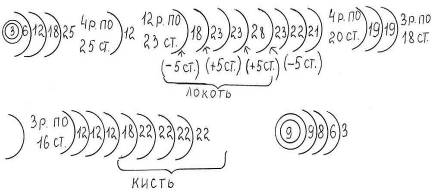 3 6 12 18 25 4р. по 25 ст. 12 12р. по 23 ст. 18 23 23 28 23 22 21 4р. по 20 ст. 19 19 3р. по 18 ст.
(-5 ст.) (+5 ст.) (+5 ст.) (-5 ст.)
ЛОКОТЬ
3 р. по 16 ст. 12 12 12 18 22 22 22 22
КИСТЬ
9 9 8 6 3